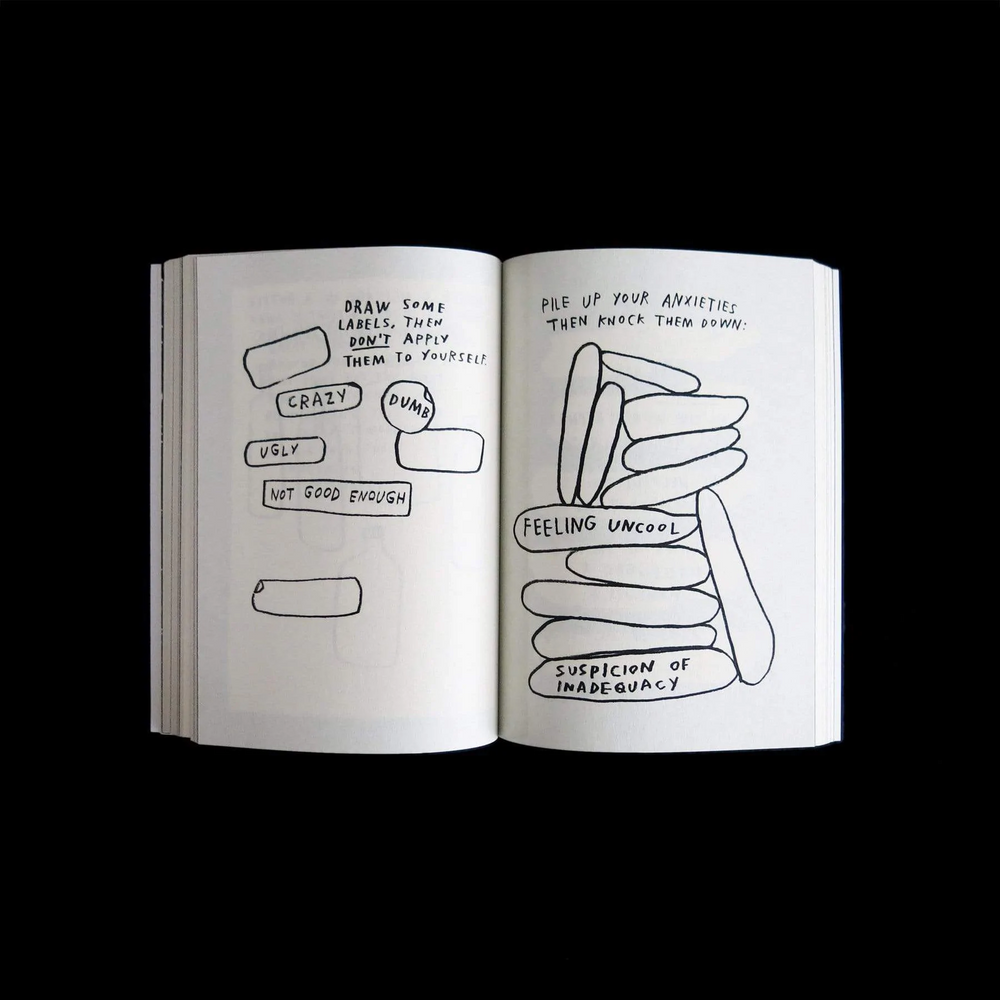 DRAW SOME
LABELS, THEN
DON'T APPLY
THEM TO YOURSELF.
CRAZY
DUMB
UGLY
NOT GOOD ENOUGH
PILE UP YOUR ANXIETIES
THEN KNOCK THEM DOWN:
FEELING UNCOOL
SUSPICION OF
INADEQUACY